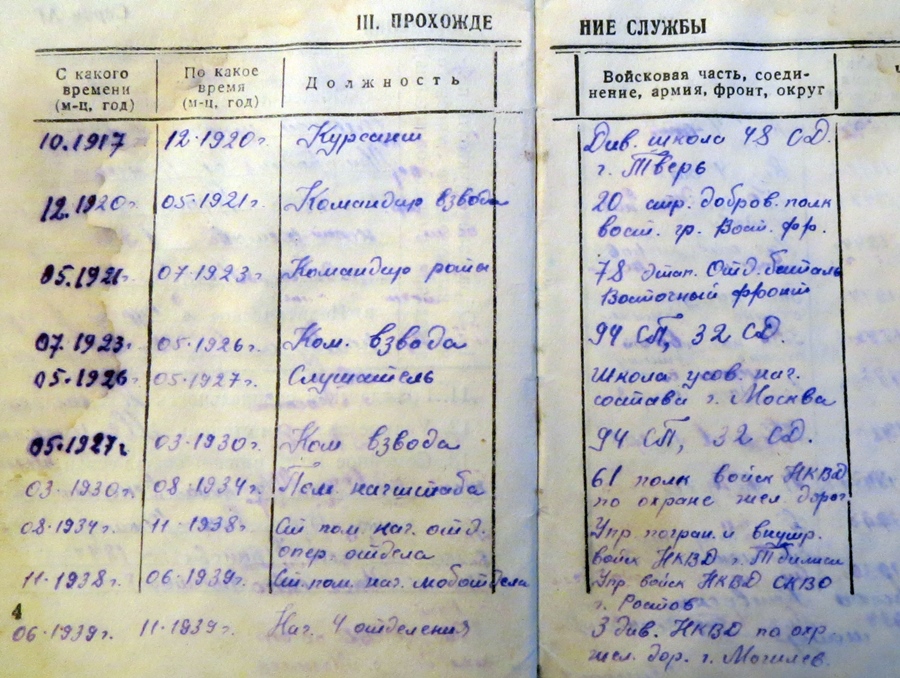 III. ПРОХОЖДЕ
НИЕ СЛУЖБЫ
С какого времени (м-ц, год)
По какое время (м-ц, год)
Должность
Войсковая часть, соеди-
нение, армия, фронт, округ
10.1917 12.1920г. Курсант Див. школа 48 СД.
г. Тверь
12.1920г. 05.1921г. Командир взвода 20 стр. добров. полк
вост. гр. Вост. фр.
05.1921г. 07.1923г. Командир роты 78 этап. Отд. баталь
Восточный фронт
07.1923г. 05.1926г. Ком. взвода 94 СП, 32 СД.
05.1926г. 05.1927г. Слушатель Школа усов. нач.
состава г. Москва
05.1927г. 03.1930г. Ком взвода 94 СП, 32 СД.
03.1930г. 08.1934г. Пом. начштаба 61 полк войск НКВД
по охране жел. дорог
08.1934г. 11.1938г. Ст пом. нач. отд. Упр. погран. и внутр.
опер. отдела войск НКВД г. Тбилиси
11.1938г. 06.1939г. Ст. пом. нач. моботдела Упр. войск НКВД СКВО
г. Ростов
4
06.1939г. 11.1939г. Нач. 4 отделения 3 див. НКВД по охр
жел. дор. г. Могилев.